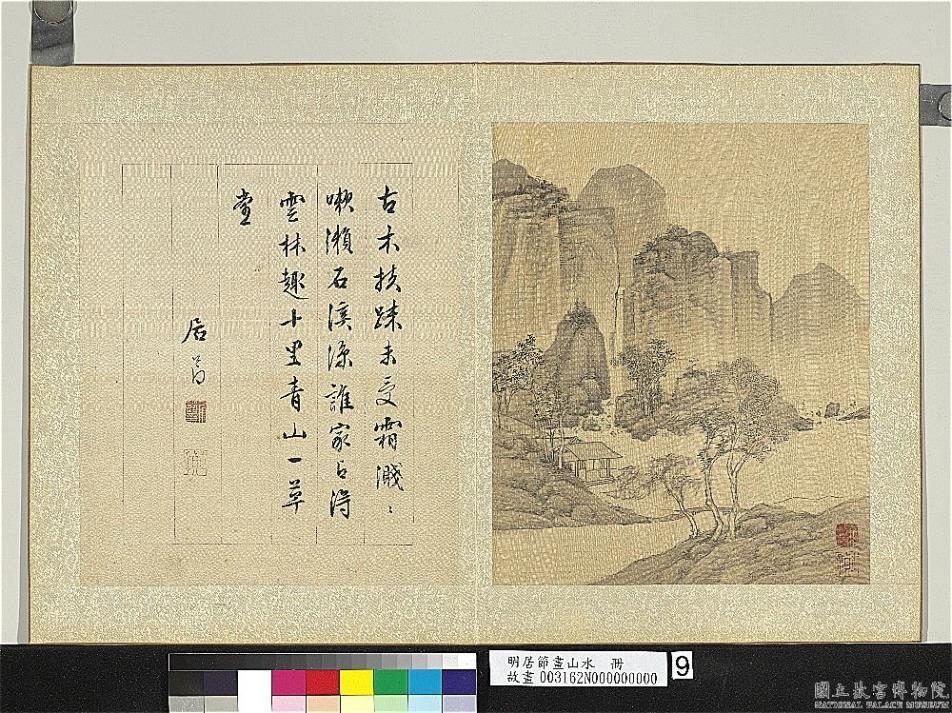 古木扶疎未受霜濺〻
嗽瀨石溪涼誰家占得
雲林趣十里青山一草
堂
居節
明居節畫山水 冊
故畫003162N000000000
9
國立故宮博物院
NATIONAL PALACE MUSEUM